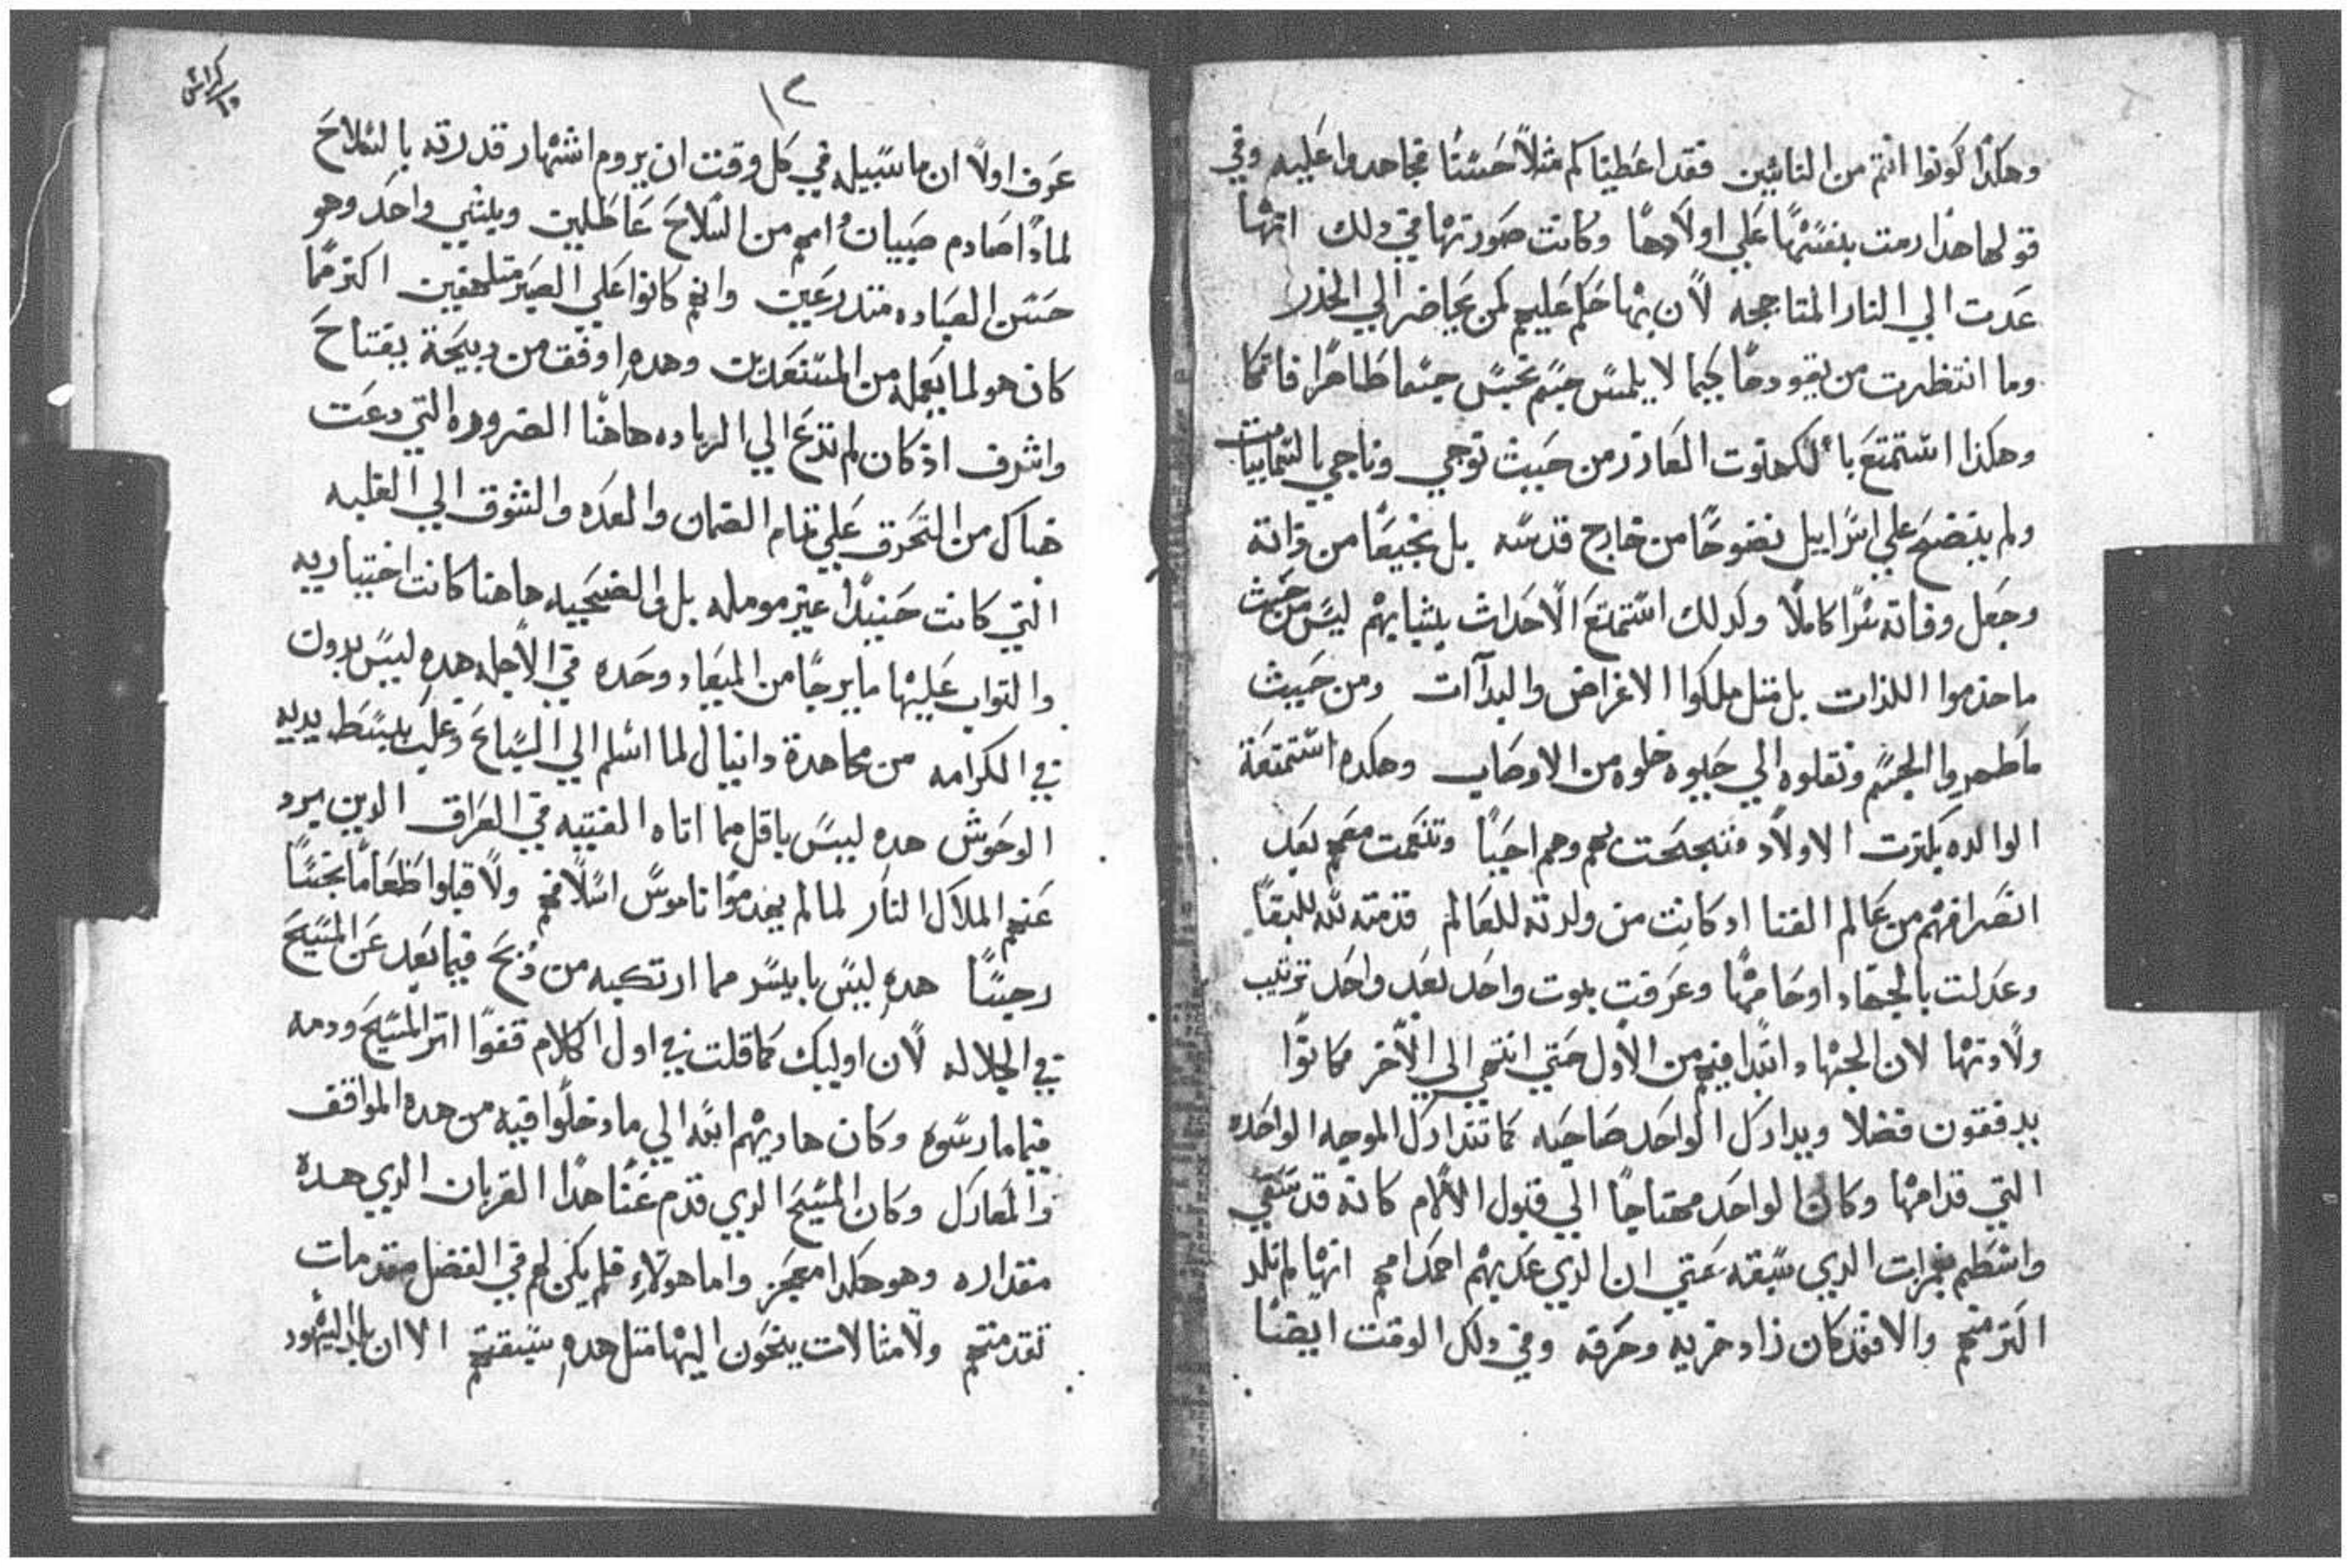 وهكذا كونوا انتم من النائبين فقد اعطيناكم مثلاً حسنًا فجاهدوا عليه وفي
قولها هذا رمت بنفسها علي اولادها وكانت صورتها في دلك انها
عدت الي النار المتاججه لان بها حكم عليهم كمن يحاضر الي الخدر
وما انتظرت من يقودها كيما لا يلمس جسم نجس جسما طاهرا
وهكدا استمتع بالكهنوت العازر من حيث توجي وناجي بالسماييات
ولم ينضح علي اسراييل نضوحًا من خارج قدسه بل نجيعًا من ذاته
وجعل وفاته سرًا كاملًا ولدلك استمتع الاحداث بشبابهم ليس من حيث
ما خدموا اللذات بل مثل ملكوا الاغراض والبدآات ومن حيث
ما طهروا الجسم ونقلوه الي حيوه خلوه من الاوصاب وهكده استمتعة
الوالده بكثرت الاولاد فتبجحت بهم وهم احيا وتنعمت معهم بعد
انصرافهم من عالم الفنا اد كانت من ولدته للعالم قدمته لله للبقا
وعدلت بالجهاد اوحامها وعرفت بموت واحد بعد واحد ترتيب
ولادتها لان الجهاد ابتدا فيهم من الاول حتي انتهي الي الاخر فكانوا
يدفقون فضلا ويدارك الواحد صاحبه كما تتدارك الموجه الواحده
التي قدامها وكان الواحد محتاجًا الي قبول الالام كانه قد سقي
الدي سبقه حتي ان الدي عديهم احمد امهم انها لم تلد
اكتر منهم والا فقد كان زاد خزيه وحرقه وفي دلك الوقت ايضًا
كراس ١٥
١٢
عرف اولاً ان ما سبيله في كل وقت ان يروم اشتهار قدرته بالسلاح
لماذا صادم صبيان امهم من السلاح عاطلين وبشي واحد وهو
حسن العباده متدرعين وانهم كانوا علي الصبر متلهفين اكتر مما
كان هو لما يعمله من المستعدين وهده اوفق من دبيحة يفتاح
واشرف اذ كان لم تدع الي الزياده هاهنا الضروره التي دعت
هناك من التحرق علي تمام الضمان والعده والتشوق الي الغلبه
التي كانت حينيدًا غير مومله بل والضحيه هاهنا كانت اختياريه
والتواب عليها ما يرجا من الميعاد وحده في الاجله هده ليس بدون
في الكرامه من مجاهدة دانيال لما اسلم الي السباع وغلب ببسط يديه
الوحوش هده ليس باقل مما اتاه الفتيه في العراق الدين برد
عنهم الملاك النار لما لم يعدموا ناموس اسلافهم ولا قبلوا طعاما نجسًا
رجسًا هده ليس بايسر مما ارتكبه من دبح فيما بعد عن المسيح
في الجلاله لان اوليك كما قلت في اول الكلام قفوا اتر المسيح ودمه
فيما مارسوه وكان هاديهم الله الي ما دخلوا فيه من هده المواقف
والمعارك وكان المسيح الدي قدم عنا هدا القربان الدي هده
مقداره وهو هكدا معجز واما هولاء فلم يكن لهم في الفضل مقدمات
تقدمتهم ولا مثالات ينحون اليها متل هده سبقتهم الا ان بلد اليهود